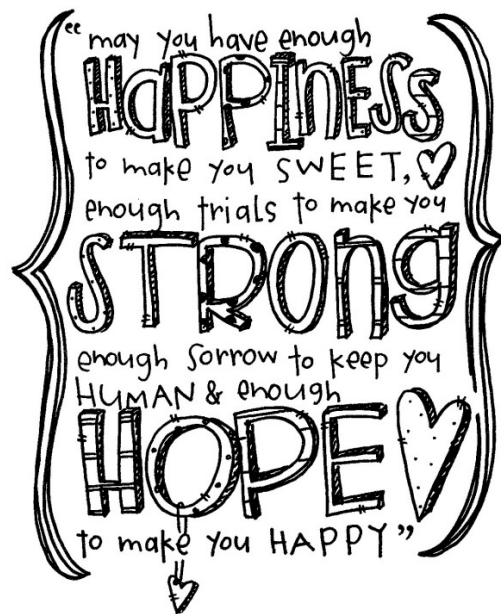 “may you have enough
HaPPInESS
to make you SWEET,
enough trials to make you
STROng
enough sorrow to keep you
HUMAN & enough
HOPE
to make you HAPPY”